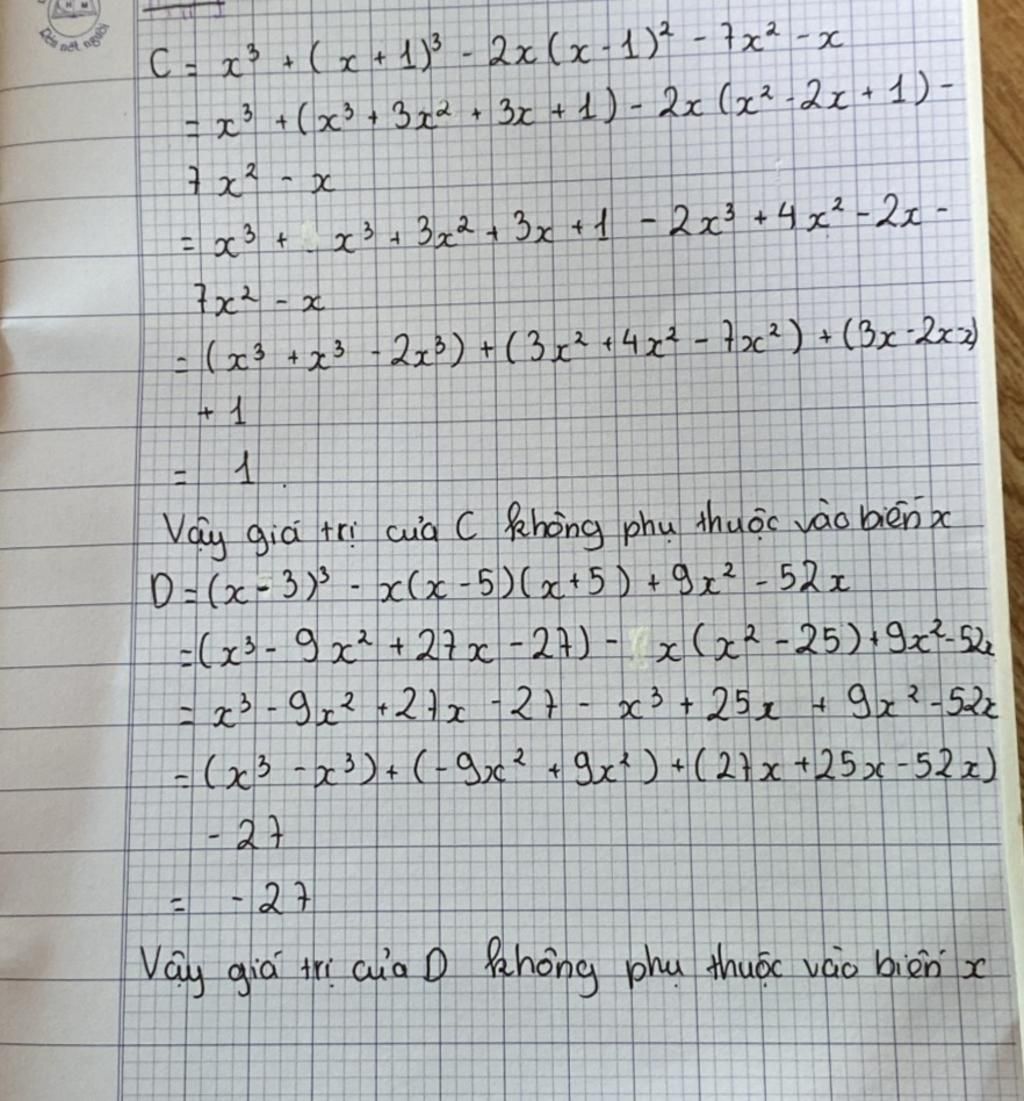 Nét nét người
C = x³ + (x + 1)³ - 2x(x - 1)² - 7x² - x
= x³ + (x³ + 3x² + 3x + 1) - 2x(x² - 2x + 1) -
7x² - x
= x³ + x³ + 3x² + 3x + 1 - 2x³ + 4x² - 2x -
7x² - x
= (x³ + x³ - 2x³) + (3x² + 4x² - 7x²) + (3x - 2x - x)
+ 1
= 1.
Vậy giá trị của C không phụ thuộc vào biến x
D = (x - 3)³ - x(x - 5)(x + 5) + 9x² - 52x
= (x³ - 9x² + 27x - 27) - x(x² - 25) + 9x² - 52x
= x³ - 9x² + 27x - 27 - x³ + 25x + 9x² - 52x
= (x³ - x³) + (-9x² + 9x²) + (27x + 25x - 52x)
- 27
= - 27
Vậy giá trị của D không phụ thuộc vào biến x